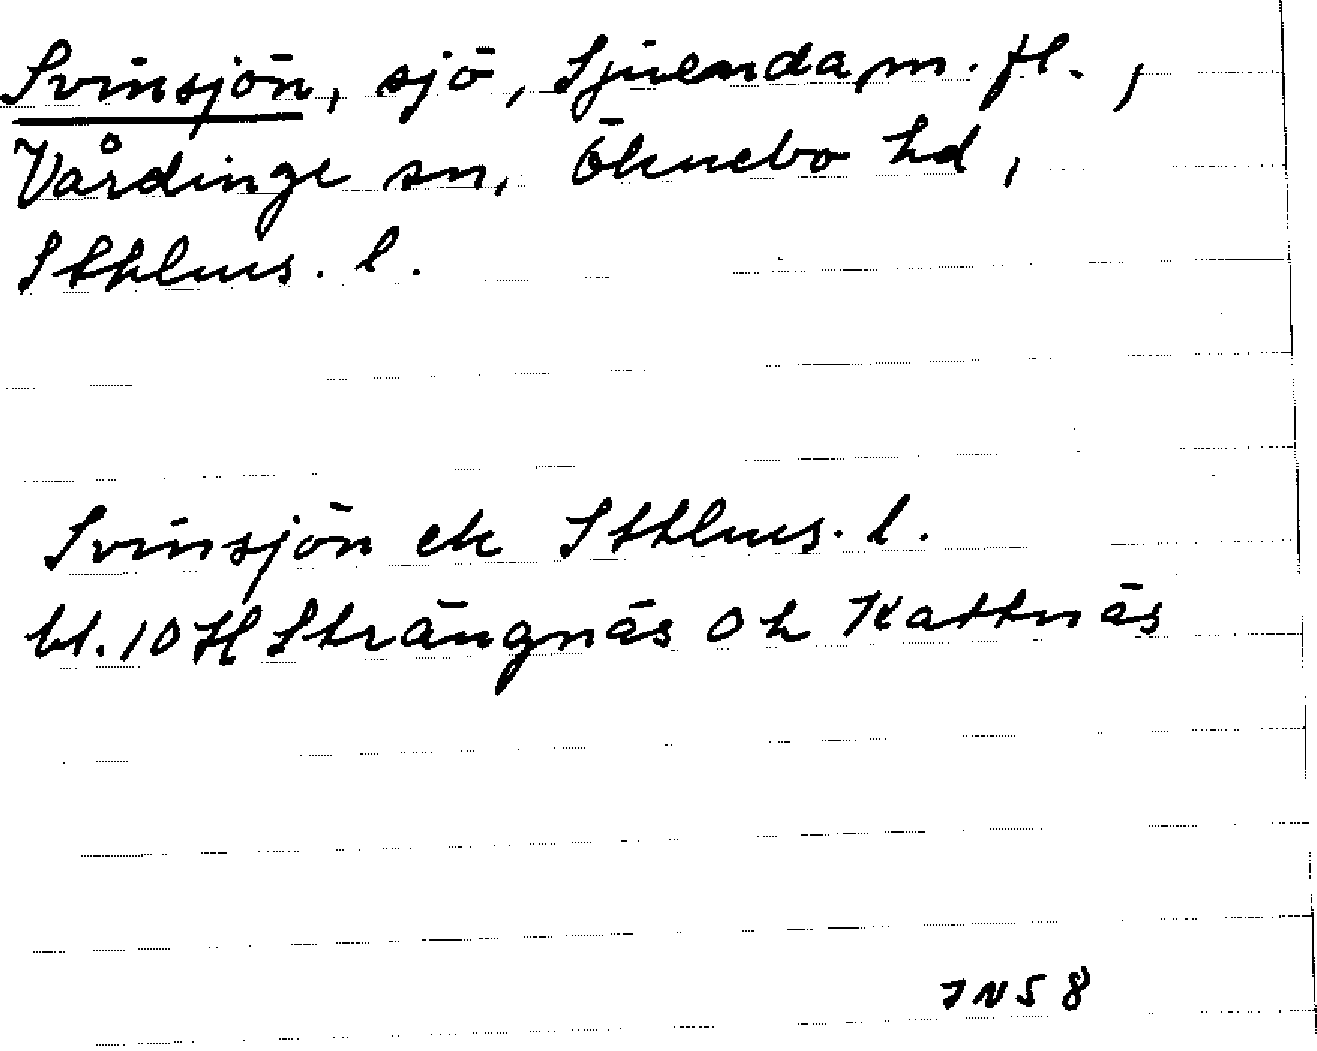 Svinsjön, sjö, Sjuenda m. fl.,
Vårdinge sn, Öknebo hd,
Sthlms. l.
Svinsjön ek Sthlms. l.
bl. 10 H Strängnäs 0 h Kattnäs
JN58